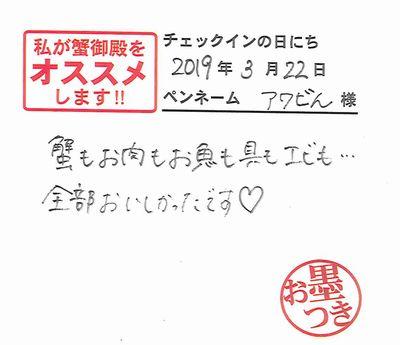 私が蟹御殿を
オススメ
します!!
チェックインの日にち
2019年3月22日
ペンネーム アワビん 様
蟹もお肉もお魚も具もエビも…
全部おいしかったです♡
お墨つき